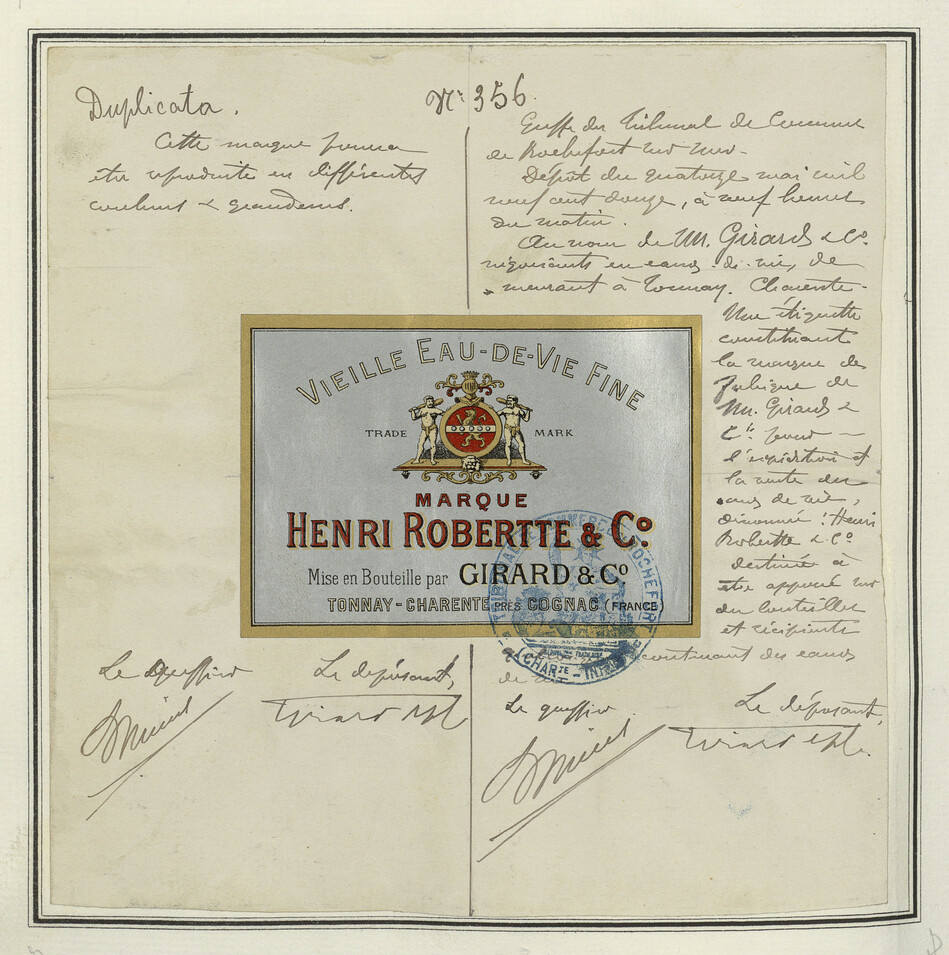 Duplicata.
Cette marque pourra
être reproduite en différentes
couleurs & grandeurs.
N° 356.
Greffe du Tribunal de Commerce
de Rochefort sur mer.
Dépôt du quatorze mai mil
neuf cent douze, à neuf heures
du matin.
Au nom de MM. Girard & Cº.
négociants en eaux-de-vie, de
meurant à Tonnay-Charente.
Une étiquette
constituant
la marque de
fabrique de
MM. Girard &
Cie pour
l'expédition et
la vente des
eaux de vie,
dénommée: Henri
Robertte & Cº
destinée à
être apposée sur
des bouteilles
et récipients
contenant des eaux
de vie
VIEILLE EAU-DE-VIE FINE
TRADE MARK
MARQUE
HENRI ROBERTTE & Cº
Mise en Bouteille par GIRARD & Cº
TONNAY-CHARENTE PRÈS COGNAC (FRANCE)
TRIBUNAL DE COMMERCE ROCHEFORT
(CHARTE - INFRE)
Le greffier Le déposant,
Girard
Le greffier Le déposant,
Girard